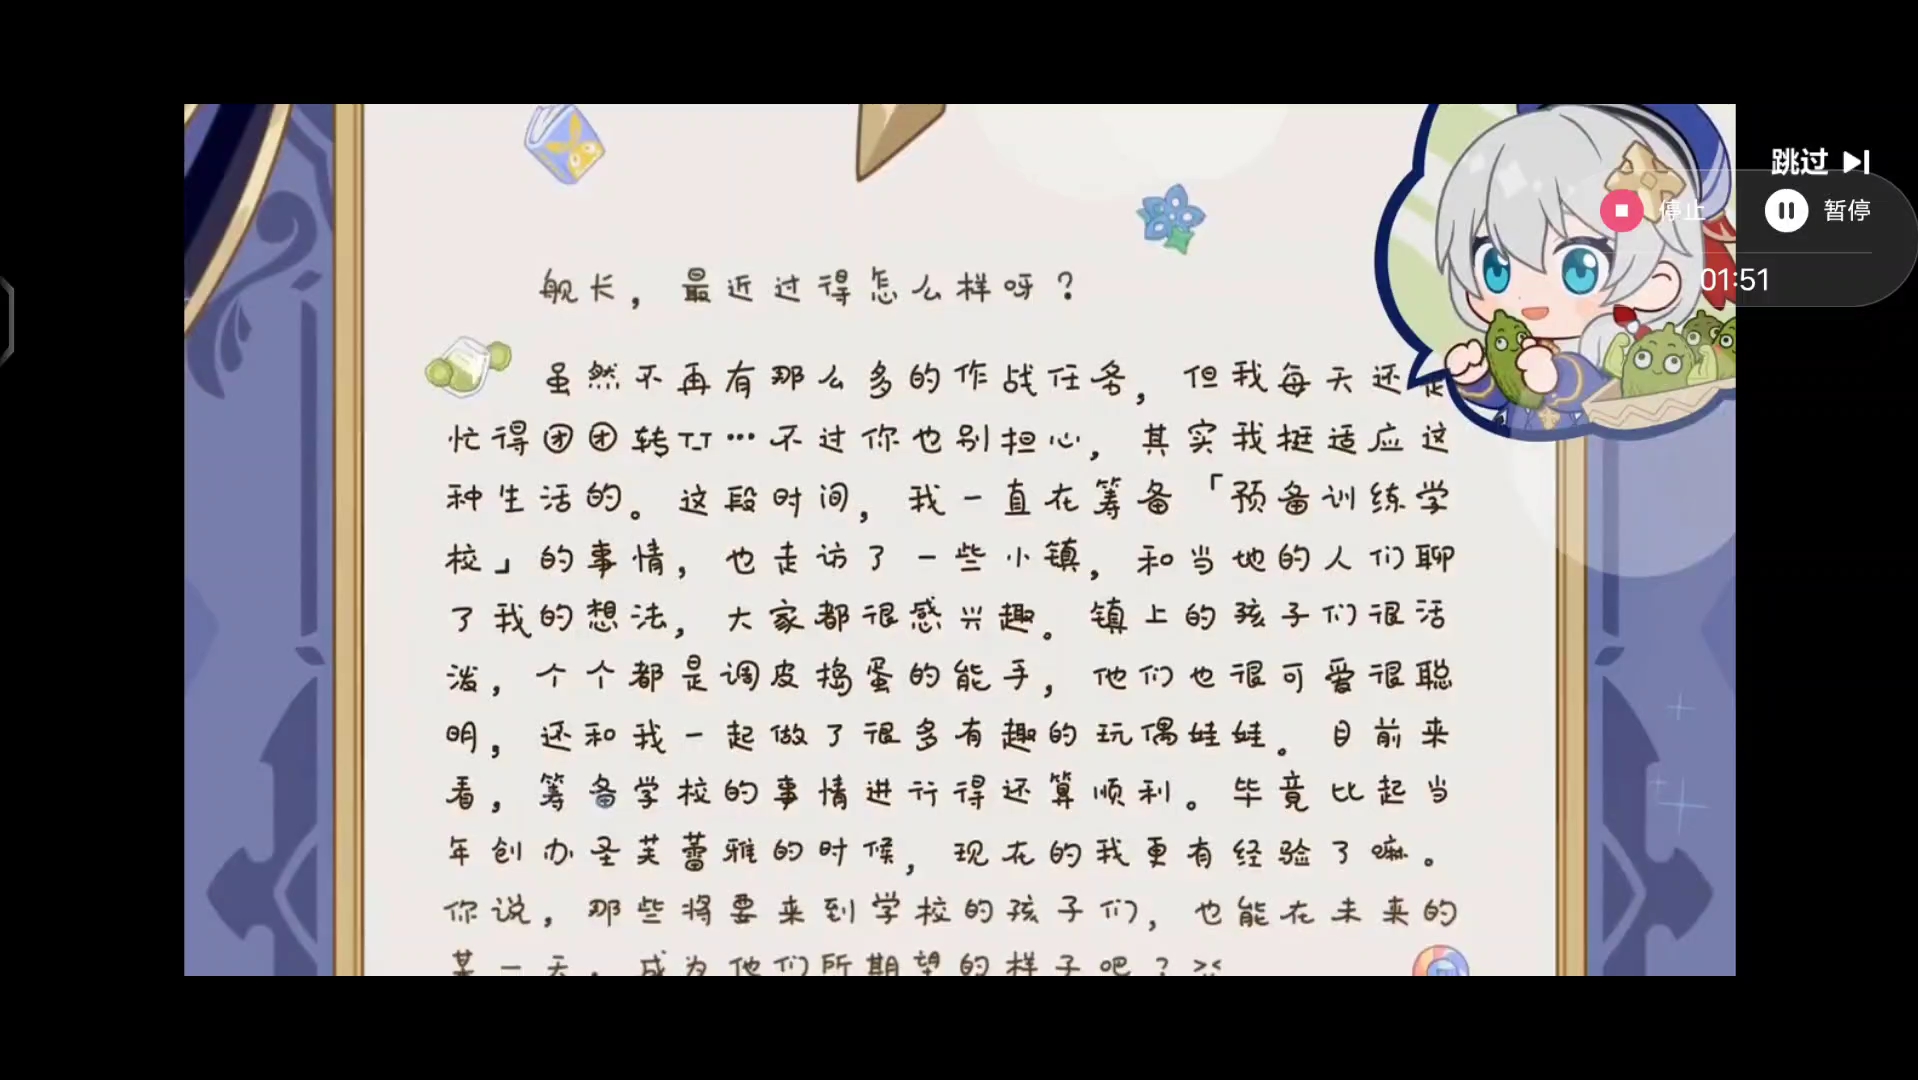 跳过
停止
暂停
01:51
舰长，最近过得怎么样呀？
虽然不再有那么多的作战任务，但我每天还是
忙得团团转TT…不过你也别担心，其实我挺适应这
种生活的。这段时间，我一直在筹备「预备训练学
校」的事情，也走访了一些小镇，和当地的人们聊
了我的想法，大家都很感兴趣。镇上的孩子们很活
泼，个个都是调皮捣蛋的能手，他们也很可爱很聪
明，还和我一起做了很多有趣的玩偶娃娃。目前来
看，筹备学校的事情进行得还算顺利。毕竟比起当
年创办圣芙蕾雅的时候，现在的我更有经验了嘛。
你说，那些将要来到学校的孩子们，也能在未来的
某一天，成为他们所期望的样子吧？><